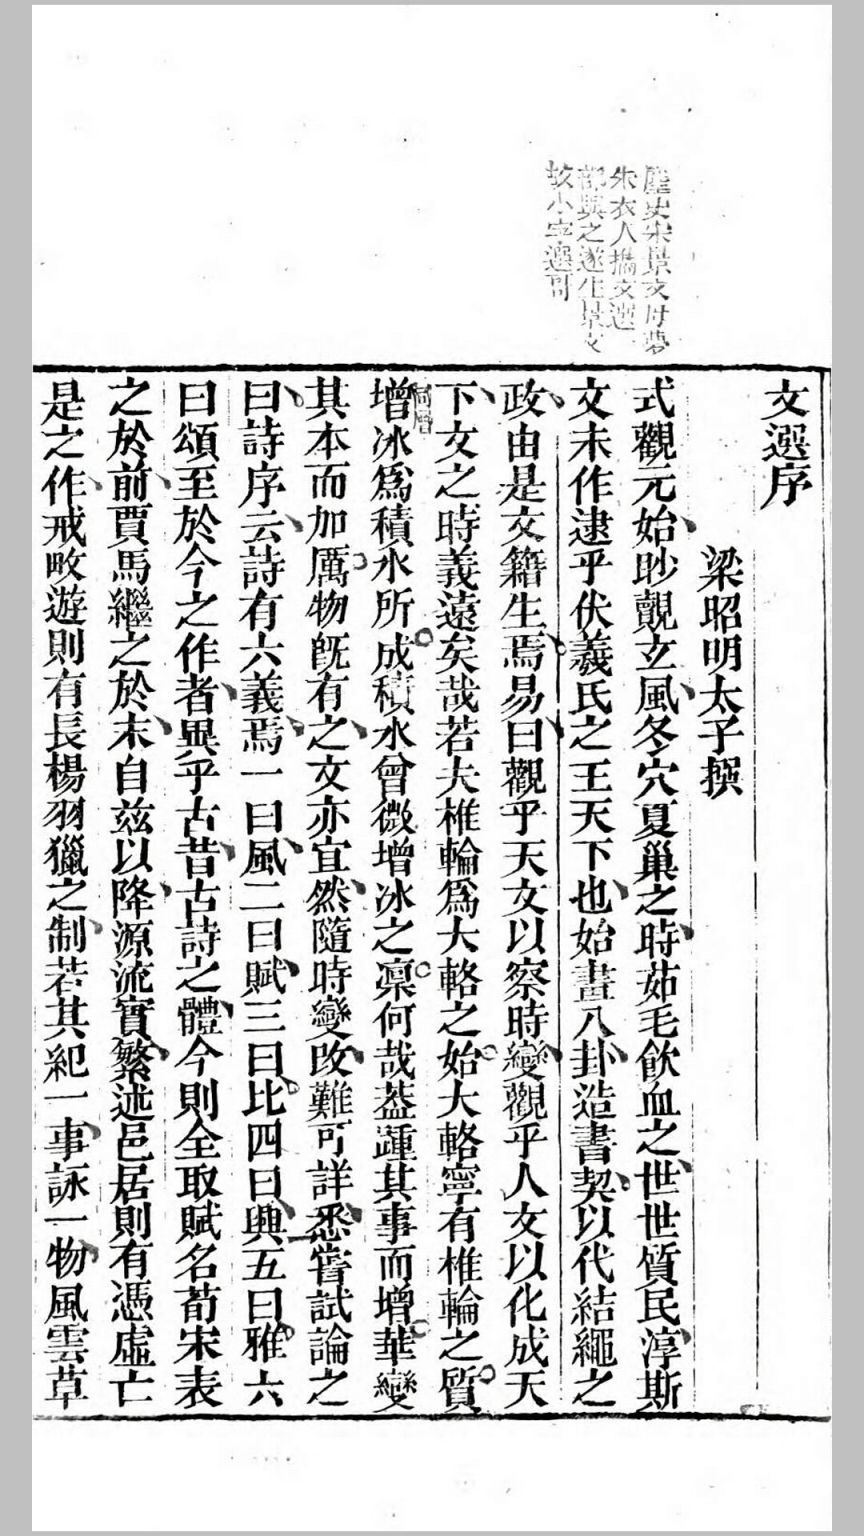 麈史宋景文母夢
朱衣人攜文選
部與之遂生景文
故小字選哥
文選序
梁昭明太子撰
式觀元始眇覿玄風冬穴夏巢之時茹毛飲血之世世質民淳斯
文未作逮乎伏羲氏之王天下也始畫八卦造書契以代結繩之
政由是文籍生焉易曰觀乎天文以察時變觀乎人文以化成天
下文之時義遠矣哉若夫椎輪爲大輅之始大輅寧有椎輪之質
增冰爲積水所成積水曾微增冰之凛何哉葢踵其事而增華變
其本而加厲物旣有之文亦宜然隨時變改難可詳悉嘗試論之
曰詩序云詩有六義焉一曰風二曰賦三曰比四曰興五曰雅六
曰頌至於今之作者異乎古昔古詩之體今則全取賦名荀宋表
之於前賈馬繼之於末自茲以降源流實繁述邑居則有憑虛亡
是之作戒畋遊則有長楊羽獵之制若其紀一事詠一物風雲草